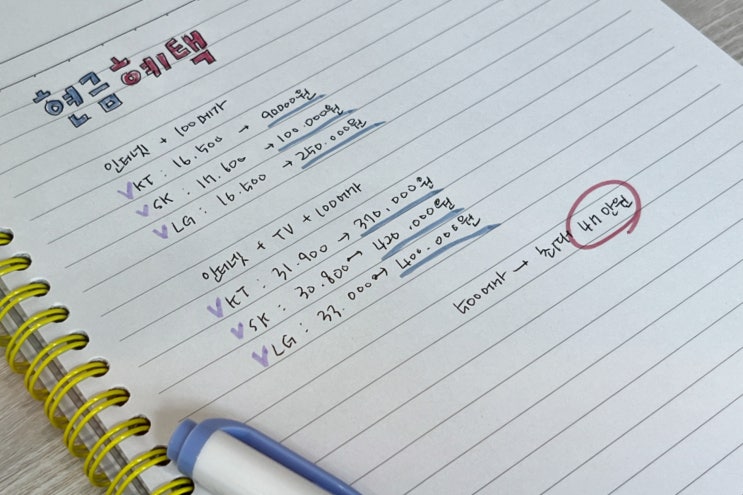 현금혜택
인터넷 + 100메가
KT : 16.500 → 90000원
SK : 17.600 → 100.000원
LG : 16.500 → 250.000원
인터넷 + TV + 100메가
KT : 31.900 → 370.000원
SK : 30.800 → 420.000원
LG : 33.000 → 400.000원
500메가 → 최대 44만원